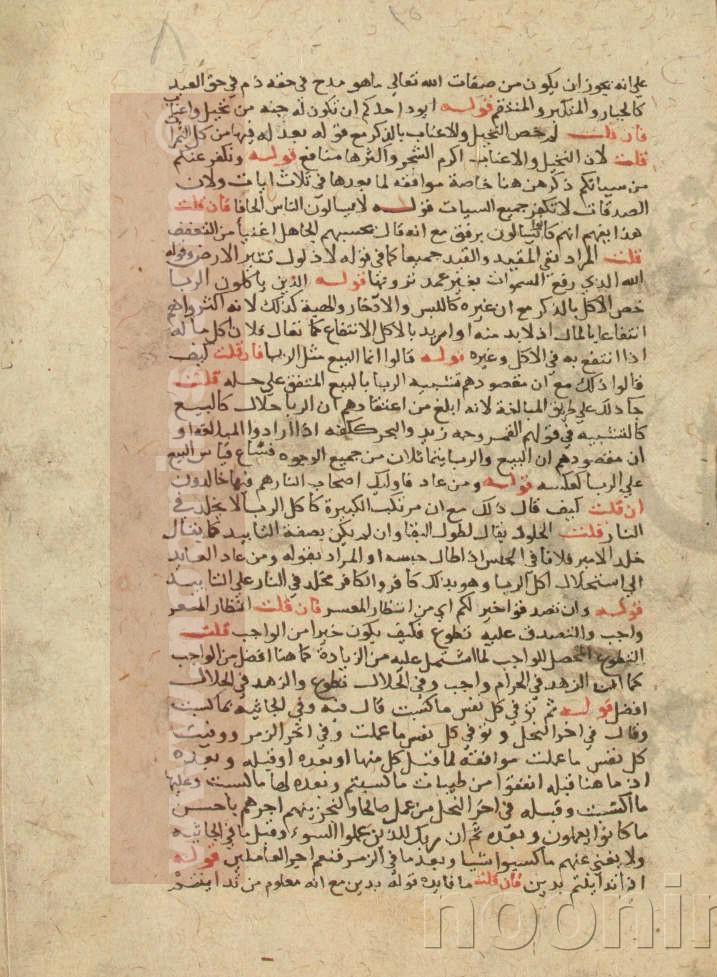 علي انه يجوز ان يكون من صفات الله تعالي ماهو مدح في حقه ذم في حق العبد
كالجبار والمتكبر والمنتقم قوله ايود احدكم ان تكون له جنه من نخيل واعناب
فان قلت لم خص النخيل والاعناب بالذكر مع قوله بعد له فيها من كل الثمرات
قلت لان النخيل والاعناب اكرم الشجر واكثرها منافع قوله ونكفر عنكم
من سياتكم ذكر من هنا خاصة موافقة لما بعدها في ثلاث ايات ولان
الصدقات لا تكفر جميع السيات قوله لا يسالون الناس الحافا فان قلت
هذا يفهم انهم كانوا يسالون برفق مع انه قال يحسبهم الجاهل اغنيا من التعفف
قلت المراد نفي المقيد والقيد جميعا كما في قوله لا ذلول تثير الارض وقوله
الله الذي رفع السموات بغير عمد ترونها قوله الذين ياكلون الربا
خص الاكل بالذكر مع ان غيره كاللبس والادخار والهبة كذلك لانه اكثر انواع
انتفاعا بالمال اذ لابد منه او اريد بالاكل الانتفاع كما يقال فلان اكل ماله
اذا انتفع به في الاكل وغيره قوله قالوا انما البيع مثل الربا فان قلت كيف
قالوا ذلك مع ان مقصودهم تشبيه الربا بالبيع المتفق علي حله قلت
جا ذلك علي طريق المبالغة لانه ابلغ من اعتقادهم ان الربا حلال كالبيع
كالتشبيه في قولهم القمر وجه زيد والبحر ككفه اذا ارادوا المبالغة او
ان مقصودهم ان البيع والربا يتماثلان من جميع الوجوه فساغ قياس البيع
علي الربا كعكسه قوله ومن عاد فاوليك اصحاب النار هم فيها خالدون
ان قلت كيف قال ذلك مع ان مرتكب الكبيرة كاكل الربا لا يخلد في
النار قلت الخلود يقال لطول البقا وان لم يكن بصفة التابيد كما يقال
خلد الامير فلانا في الحبس اذا طال حبسه او المراد بقوله ومن عاد العايد
الي استحلال اكل الربا وهو بذلك كافر والكافر مخلد في النار علي التابيد
قوله وان تصدقوا خير لكم اي من انتظار المعسر فان قلت انتظار المعسر
واجب والتصدق عليه تطوع فكيف يكون خيرا من الواجب قلت
التطوع المحصل للواجب لما اشتمل عليه من الزيادة كما هنا افضل من الواجب
كما ان الزهد في الحرام واجب وفي الحلال تطوع والزهد في الحلال
افضل قوله ثم توفي كل نفس ما كسبت قال فيه وفي الجاثيه بما كسبت
وقال في اخر النحل وتوفي كل نفس ما عملت وفي اخر الزمر ووفيت
كل نفس ما عملت موافقة لما قبل كل منها او بعده او قبله وبعده
اذ ما هنا قبله انفقوا من طيبات ما كسبتم وبعده لها ما كسبت وعليها
ما اكتسبت وقبله في اخر النحل من عمل صالحا ولنجزينهم اجرهم باحسن
ما كانوا يعملون وبعده ثم ان ربك للذين عملوا السوء وقبل ما في الجاثيه
ولا يغني عنهم ما كسبوا شيا وبعد ما في الزمر فنعم اجر العاملين قوله
اذا تداينتم بدين فان قلت ما فايدة قوله بدين مع انه معلوم من تداينتم
noonir